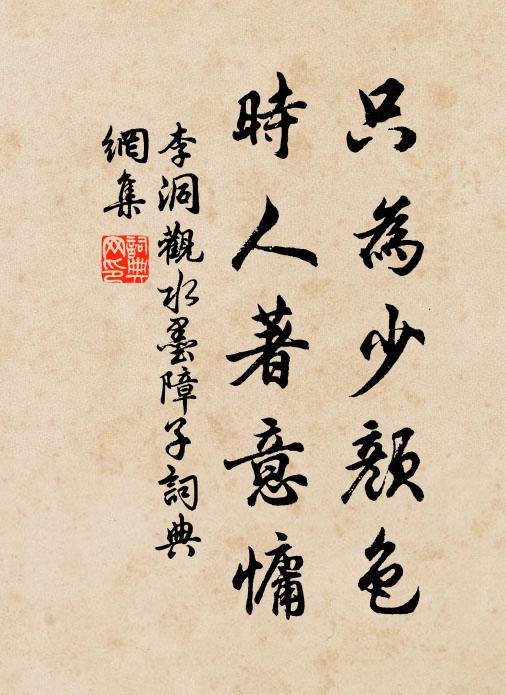 只為少顏色
時人著意慵
李洞觀水墨障子詞典
網集
詞典
网印